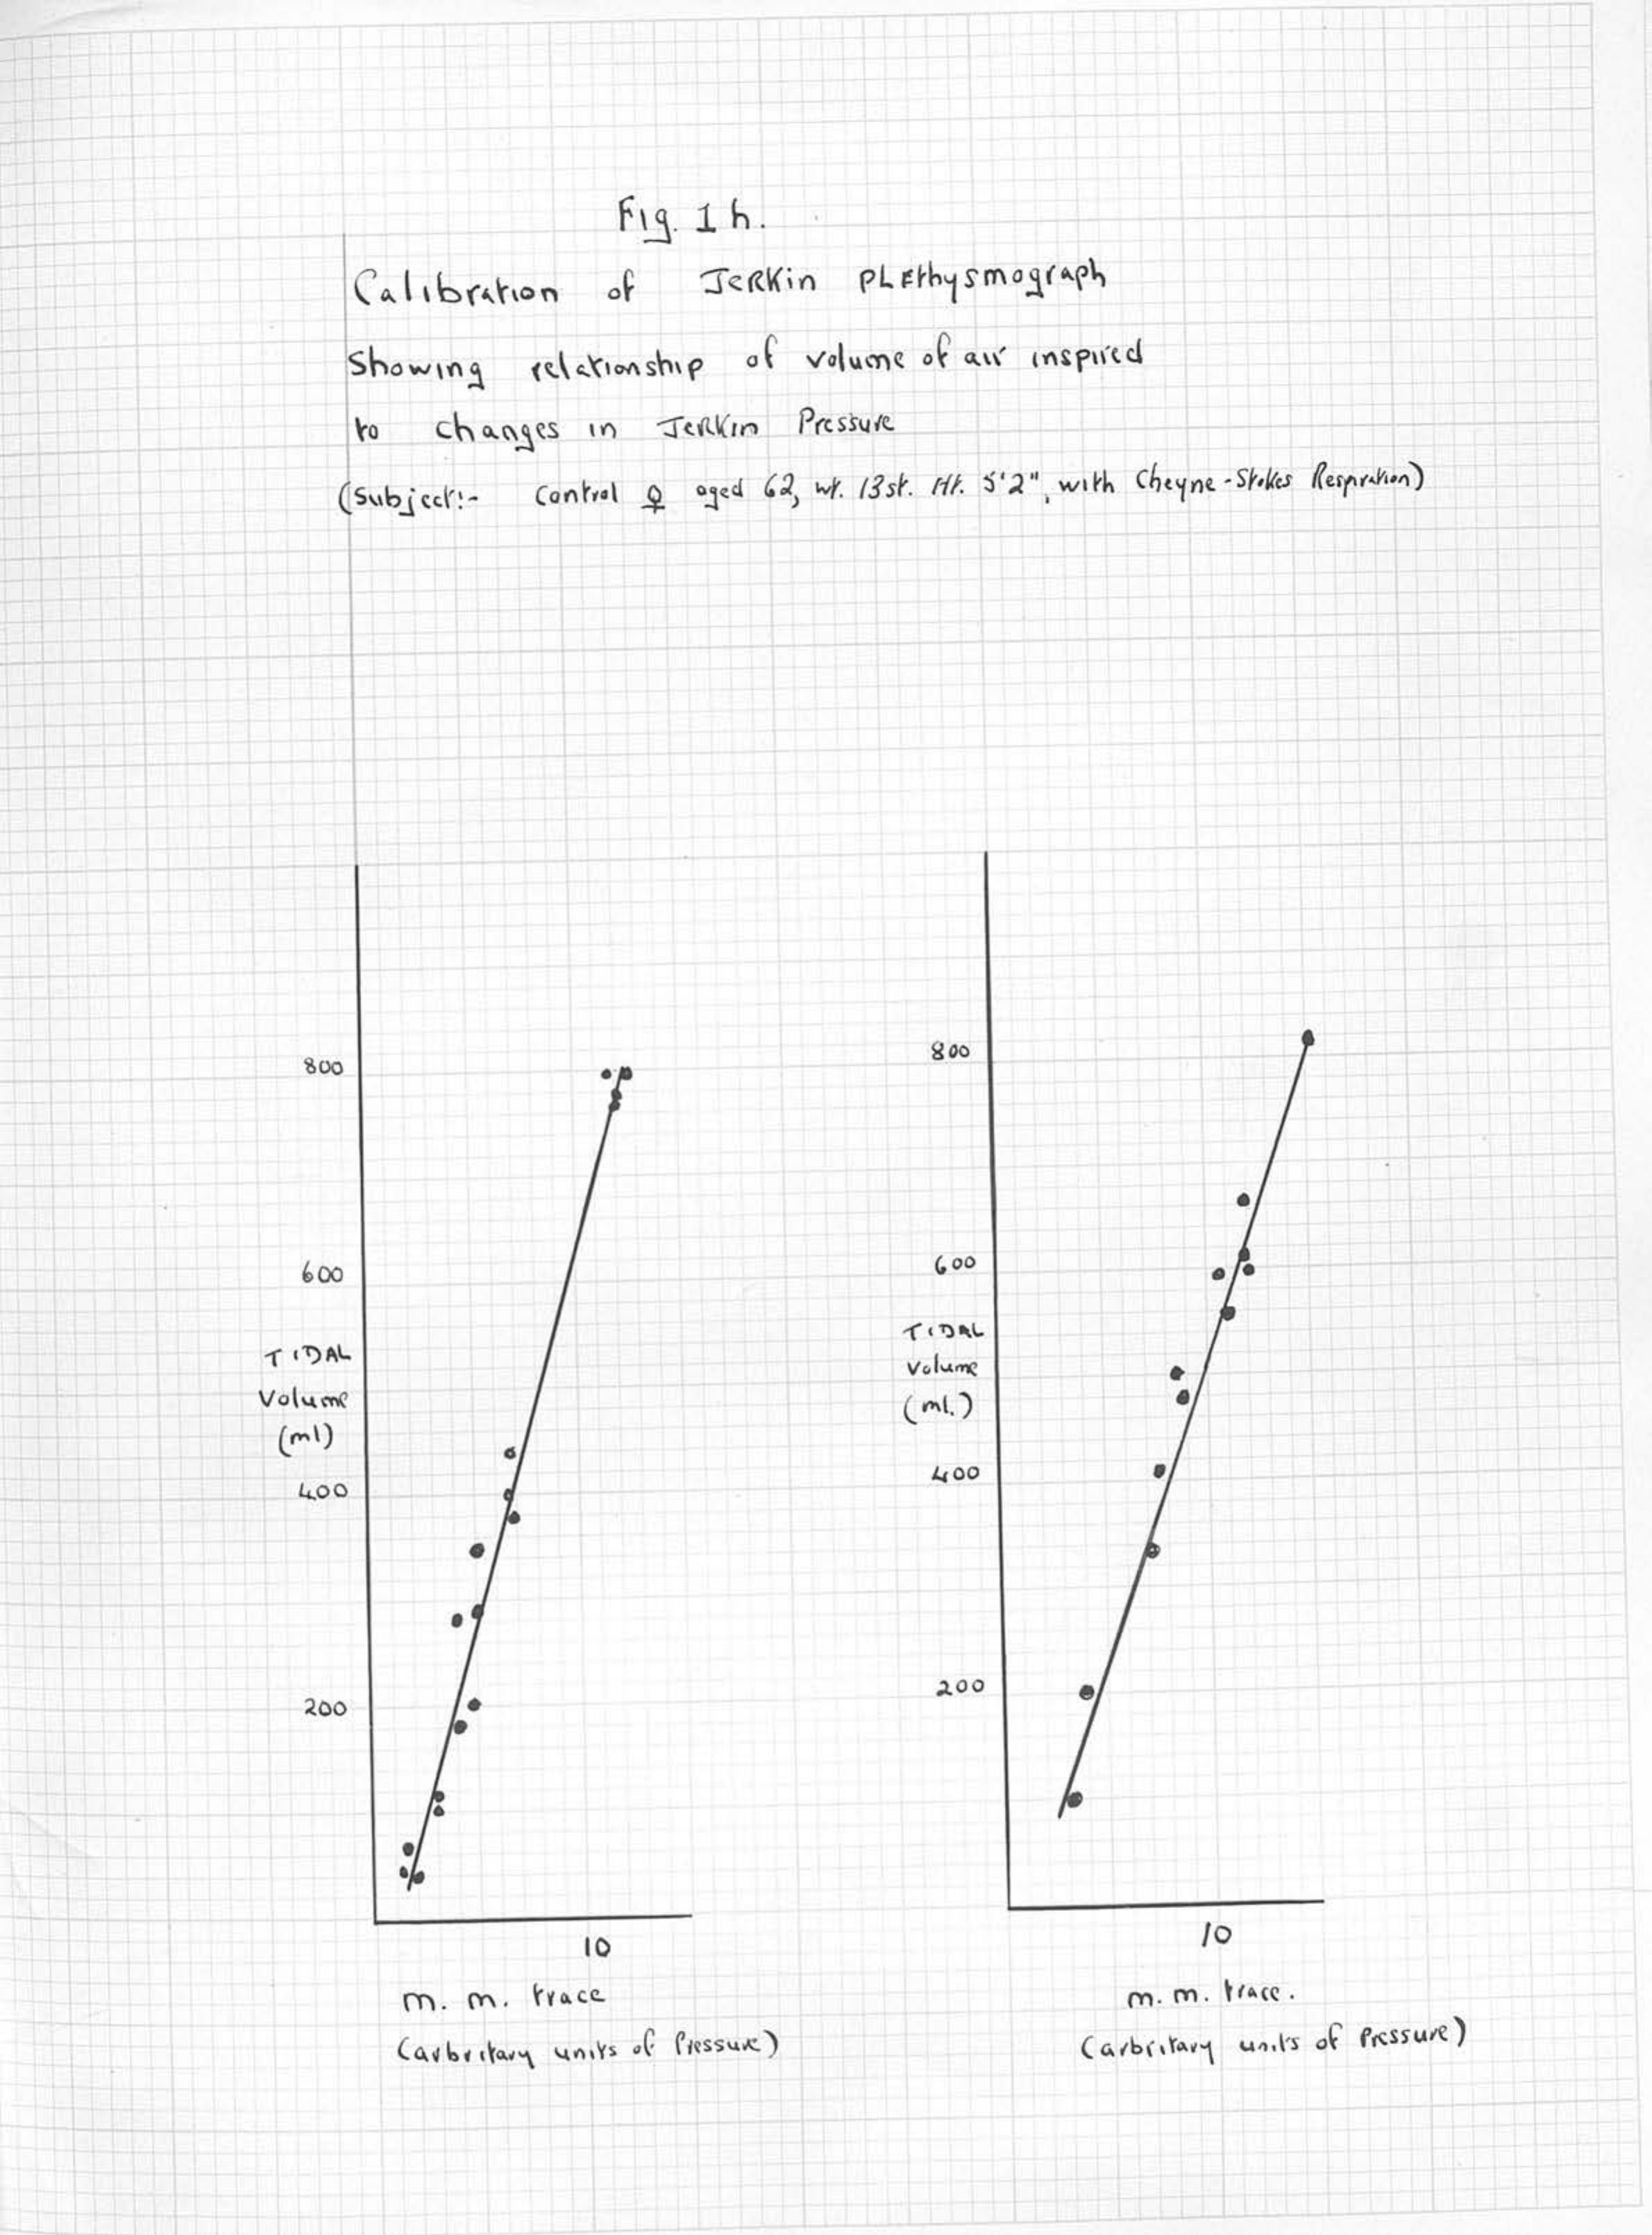 Fig. 1 h.
Calibration of Jerkin Plethysmograph
Showing relationship of volume of air inspired
to changes in Jerkin Pressure
(Subject:- Control ♀ aged 62, wt. 13st. Ht. 5'2", with Cheyne-Stokes Respiration)
800
600
TIDAL
Volume
(ml)
400
200
10
m. m. trace
(arbritary units of Pressure)
800
600
TIDAL
Volume
(ml.)
400
200
10
m. m. trace.
(arbritary units of Pressure)